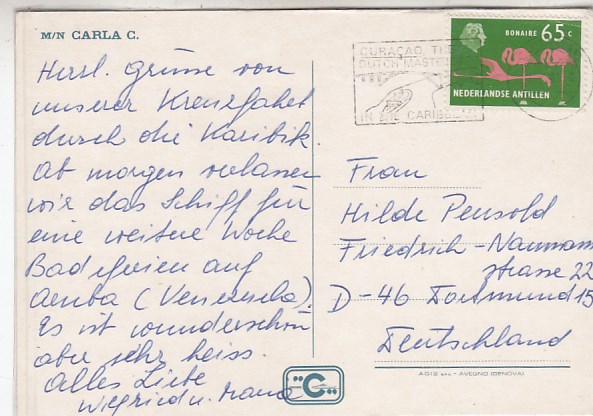 M/N CARLA C.
Herzl. Grüsse von
unserer Kreuzfahrt
durch die Karibik.
Ab morgen verlassen
wir das Schiff für
eine weitere Woche
Badeferien auf
Aruba (Venezuela).
Es ist wunderschön
aber sehr heiss.
Alles Liebe
CURAÇAO, THE
DUTCH MASTE
IN THE CARIBBEAN
BONAIRE 65 c
NEDERLANDSE ANTILLEN
Frau
Hilde Pensold
Friedrich-Naumann
strasse 22
D-46 Dortmund 15
Deutschland
C
AGIS s.r.l. - AVEGNO (GENOVA)